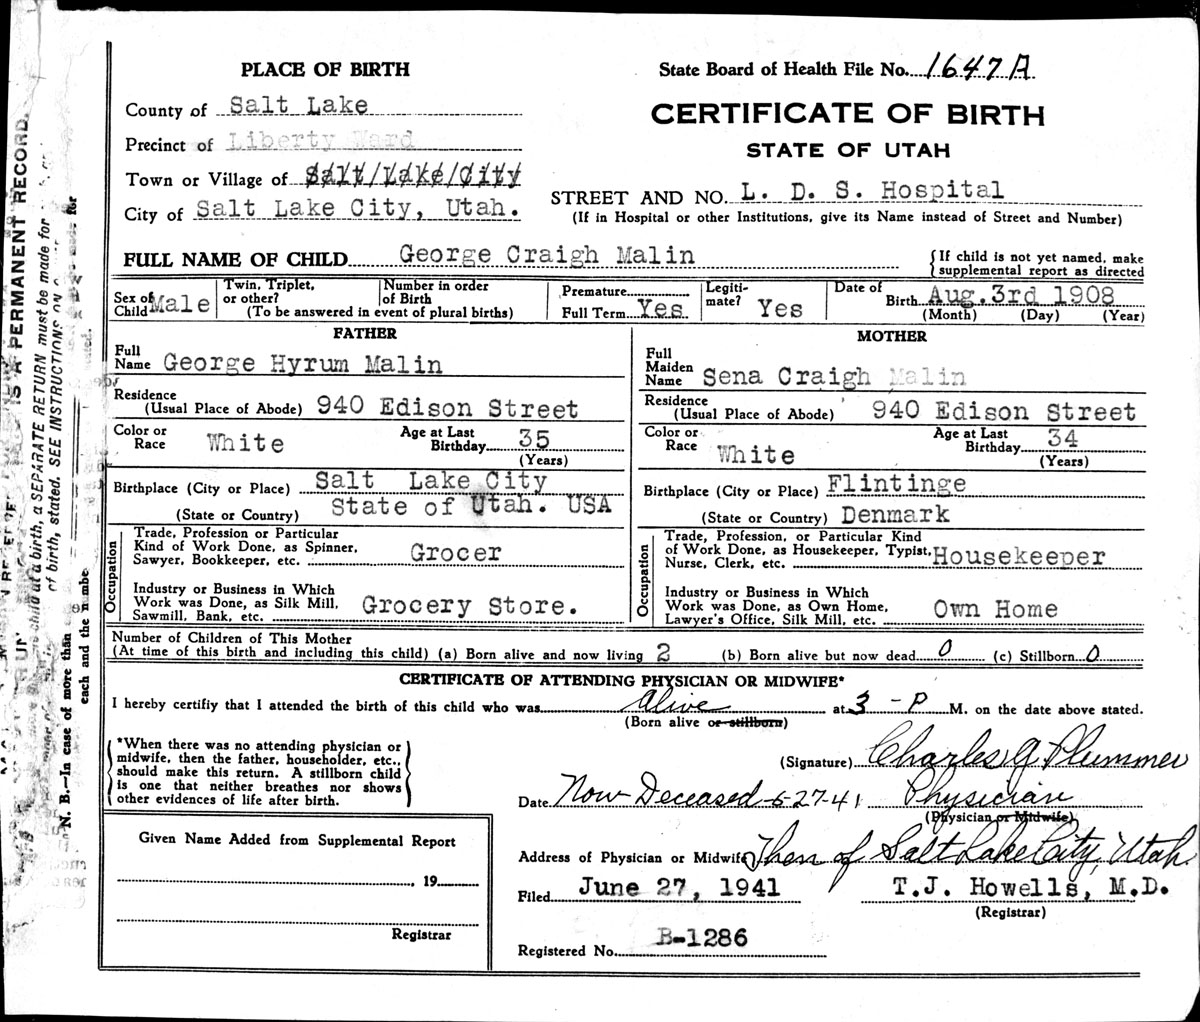 PLACE OF BIRTH
State Board of Health File No. 1647A
County of Salt Lake
CERTIFICATE OF BIRTH
Precinct of Liberty Ward
STATE OF UTAH
Town or Village of Salt/Lake/City
STREET AND NO. L. D. S. Hospital
City of Salt Lake City, Utah.
(If in Hospital or other Institutions, give its Name instead of Street and Number)
FULL NAME OF CHILD George Craigh Malin
{If child is not yet named, make
supplemental report as directed
Sex of Child Male
Twin, Triplet, or other?
Number in order of Birth
(To be answered in event of plural births)
Premature
Full Term Yes
Legiti-mate? Yes
Date of Birth Aug. 3rd 1908
(Month) (Day) (Year)
FATHER
Full Name George Hyrum Malin
Residence
(Usual Place of Abode) 940 Edison Street
Color or Race White
Age at Last Birthday 35
(Years)
Birthplace (City or Place) Salt Lake City
(State or Country) State of Utah. USA
Occupation
Trade, Profession or Particular
Kind of Work Done, as Spinner,
Sawyer, Bookkeeper, etc. Grocer
Industry or Business in Which
Work was Done, as Silk Mill,
Sawmill, Bank, etc. Grocery Store.
MOTHER
Full Maiden Name Sena Craigh Malin
Residence
(Usual Place of Abode) 940 Edison Street
Color or Race White
Age at Last Birthday 34
(Years)
Birthplace (City or Place) Flintinge
(State or Country) Denmark
Occupation
Trade, Profession, or Particular Kind
of Work Done, as Housekeeper, Typist,
Nurse, Clerk, etc. Housekeeper
Industry or Business in Which
Work was Done, as Own Home,
Lawyer's Office, Silk Mill, etc. Own Home
Number of Children of This Mother
(At time of this birth and including this child) (a) Born alive and now living 2 (b) Born alive but now dead 0 (c) Stillborn 0
CERTIFICATE OF ATTENDING PHYSICIAN OR MIDWIFE*
I hereby certifiy that I attended the birth of this child who was Alive at 3 - P M. on the date above stated.
(Born alive or stillborn)
*When there was no attending physician or
midwife, then the father, householder, etc.,
should make this return. A stillborn child
is one that neither breathes nor shows
other evidences of life after birth.
(Signature) Charles G Plummer
Date Now Deceased -6-27-41 Physician
(Physician or Midwife)
Address of Physician or Midwife Then of Salt Lake City, Utah
Filed June 27, 1941 T.J. Howells, M.D.
(Registrar)
Registered No. B-1286
Given Name Added from Supplemental Report
, 19
Registrar
IS A PERMANENT RECORD.
child at a birth, a SEPARATE RETURN must be made for
of birth, stated. SEE INSTRUCTIONS ON
N. B.—In case of more than
each and the numbe